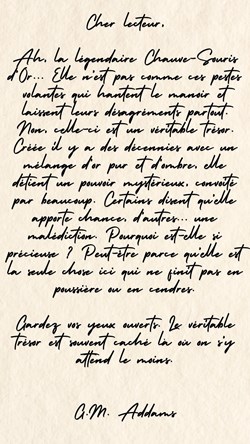 Cher lecteur,
Ah, la légendaire Chauve-Souris
d'Or... Elle n'est pas comme ces pestes
volantes qui hantent le manoir et
laissent leurs désagréments partout.
Non, celle-ci est un véritable trésor.
Créée il y a des décennies avec un
mélange d'or pur et d'ombre, elle
détient un pouvoir mystérieux, convoité
par beaucoup. Certains disent qu'elle
apporte chance, d'autres... une
malédiction. Pourquoi est-elle si
précieuse ? Peut-être parce qu'elle est
la seule chose ici qui ne finit pas en
poussière ou en cendres.
Gardez vos yeux ouverts. Le véritable
trésor est souvent caché là où on s'y
attend le moins.
G.M. Addams